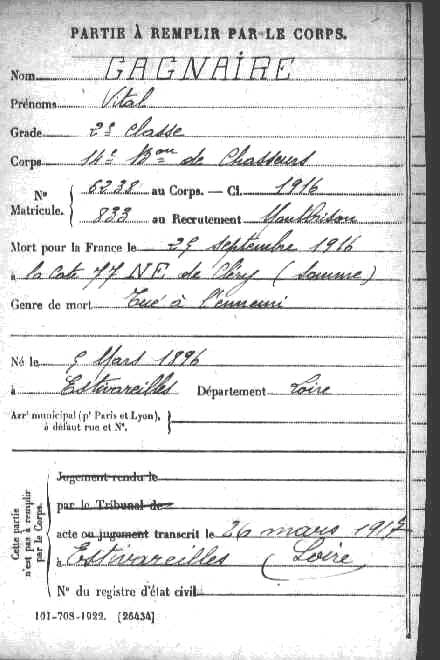 PARTIE À REMPLIR PAR LE CORPS.
Nom GAGNAIRE
Prénoms Vital
Grade 2e classe
Corps 14e Bon de Chasseurs
Nº Matricule. 6238 au Corps. — Cl. 1916
833 au Recrutement Montbrison
Mort pour la France le 25 septembre 1916
à la Cote 77 NE de Cléry (Somme)
Genre de mort Tué à l'ennemi
Né le 5 Mars 1896
à Estivareilles Département Loire
Arrt municipal (pr Paris et Lyon), à défaut rue et Nº.
Cette partie n'est pas à remplir par le Corps.
Jugement rendu le
par le Tribunal de
acte ou jugement transcrit le 26 mars 1917
à Estivareilles (Loire
Nº du registre d'état civil
101-708-1922. [26434]